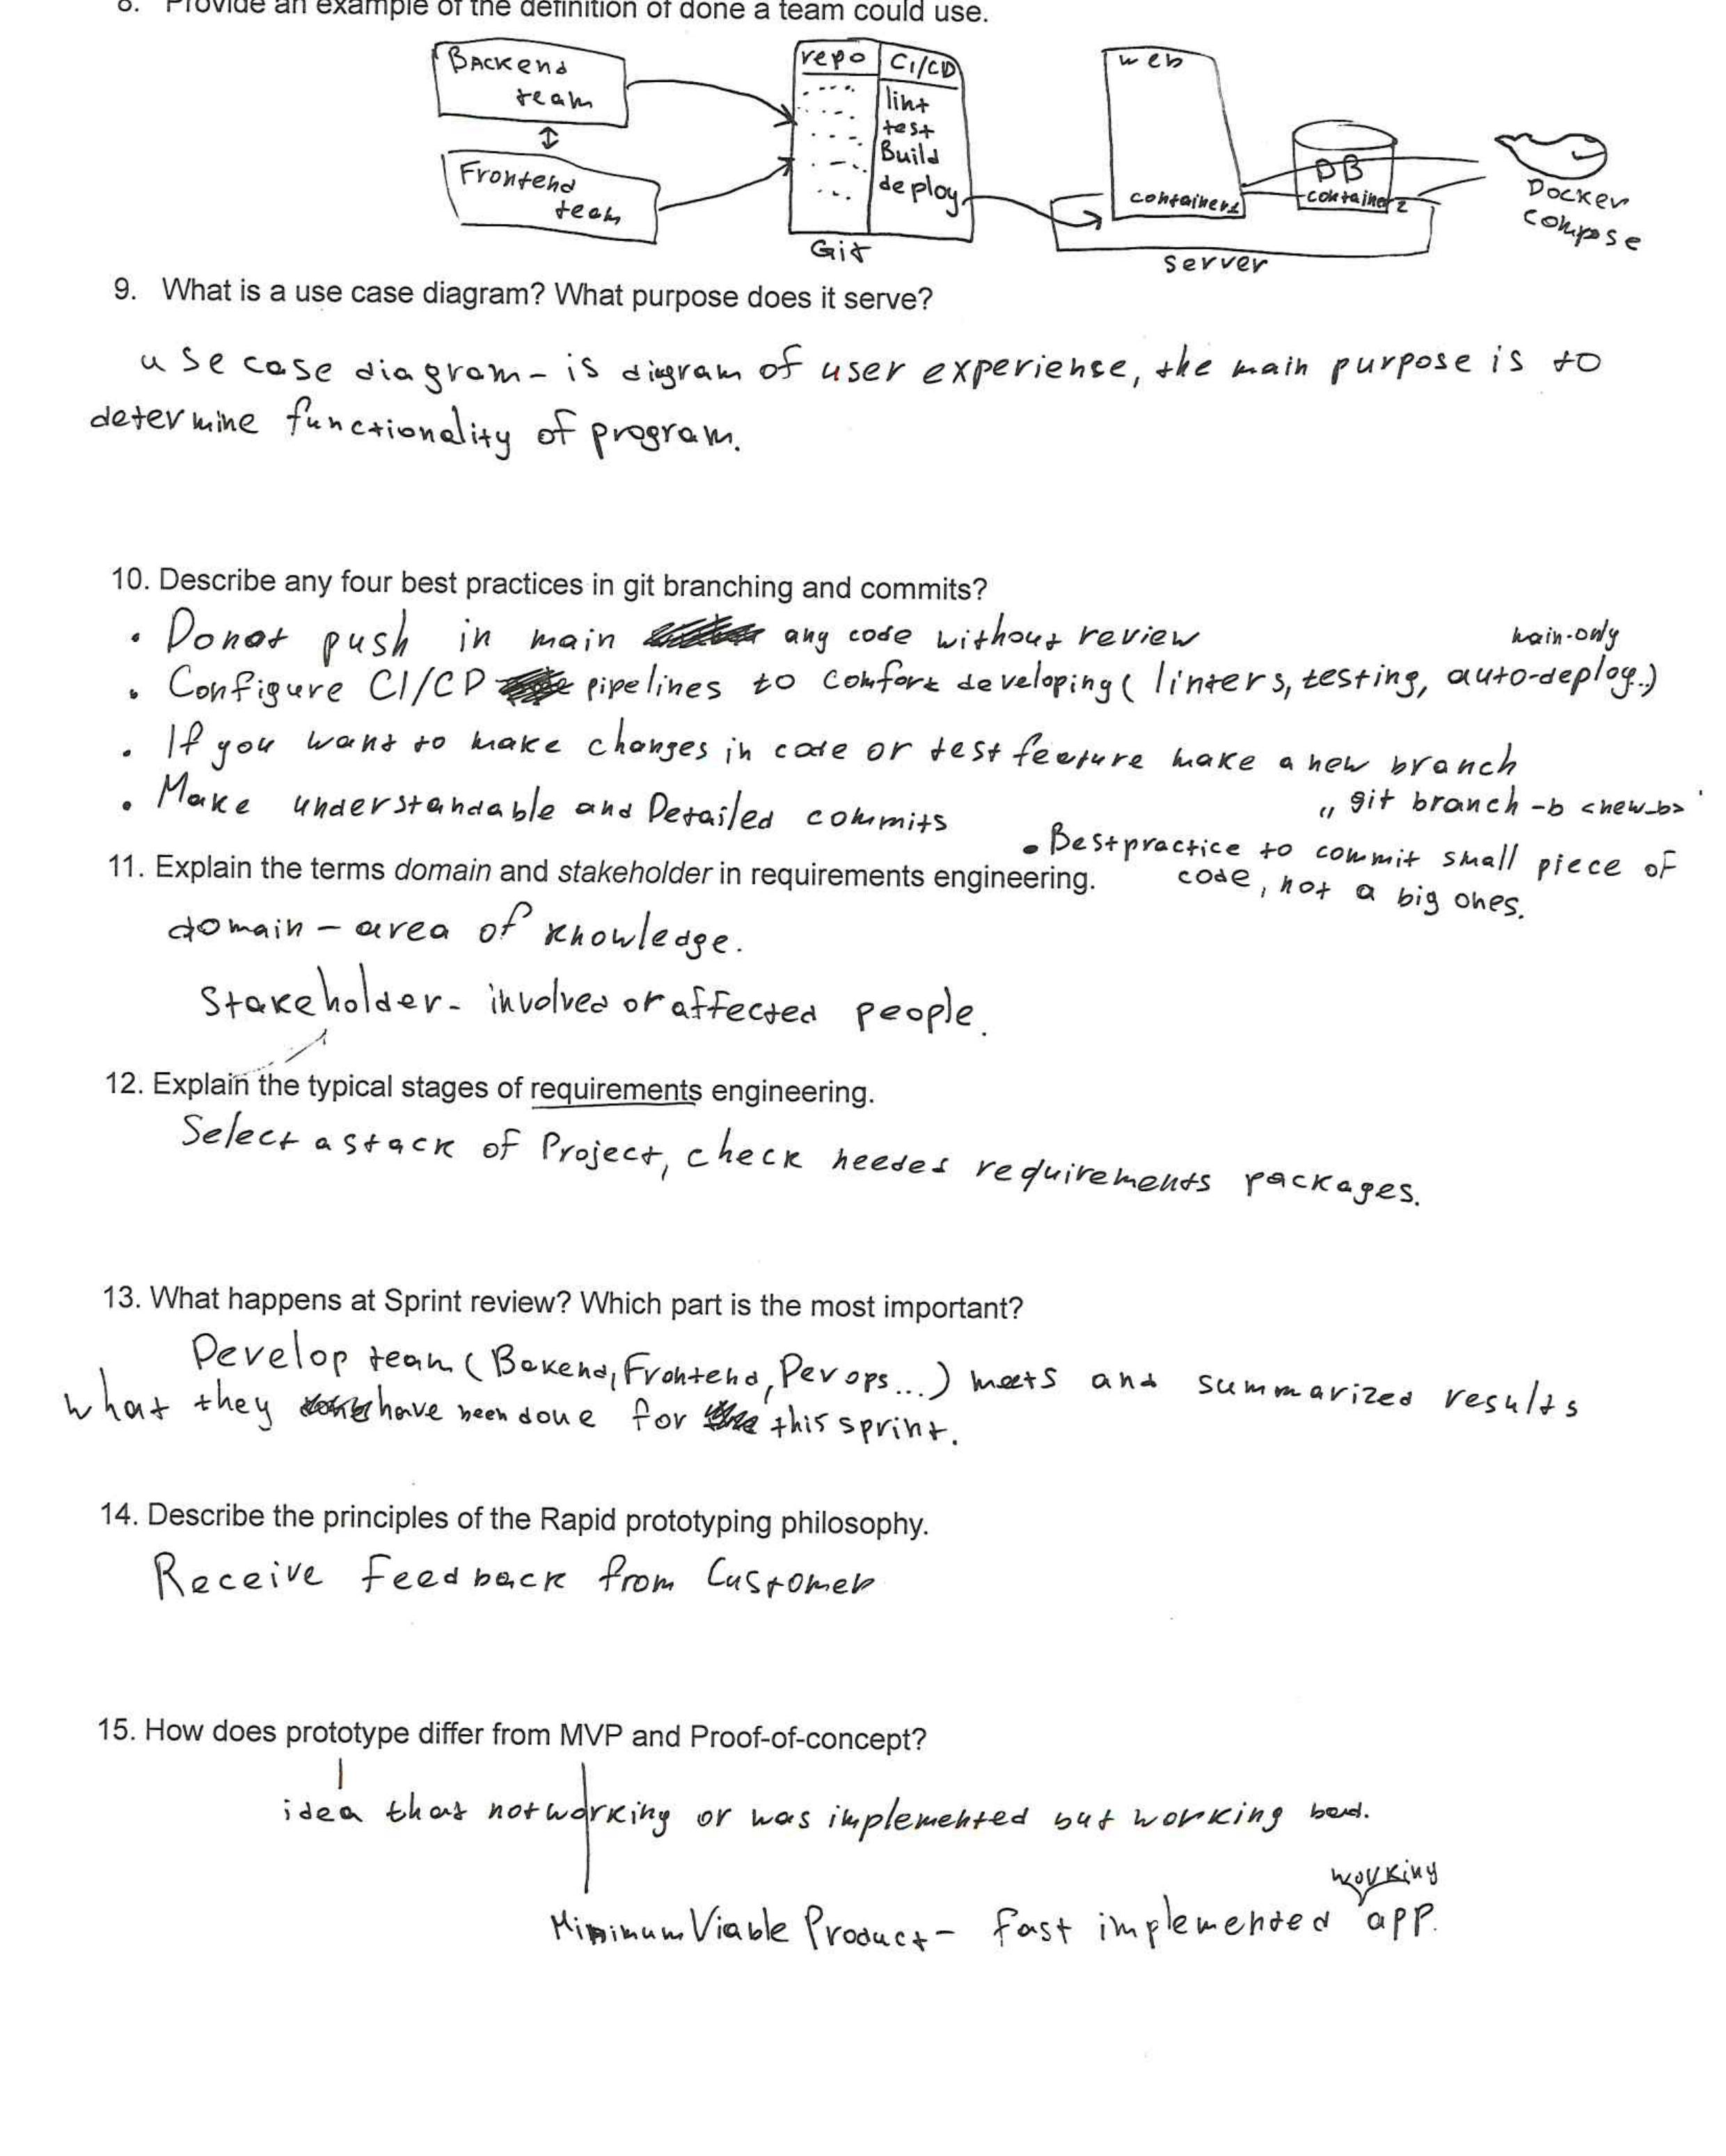 8. Provide an example of the definition of done a team could use.
Backend
team
Frontend
team
repo
CI/CD
lint
test
Build
deploy
Git
web
container1
DB
container2
server
Docker
compose
9. What is a use case diagram? What purpose does it serve?
use case diagram - is digram of user experiense, the main purpose is to
determine functionality of program.
10. Describe any four best practices in git branching and commits?
• Donot push in main any code without review
main-only
• Configure CI/CD pipelines to comfort developing ( linters, testing, auto-deploy..)
• If you want to make changes in code or test feature make a new branch
" git branch -b <new_b> '
• Make understandable and Detailed commits
• Best practice to commit small piece of
code, not a big ones.
11. Explain the terms domain and stakeholder in requirements engineering.
domain - area of knowledge.
Stakeholder - involved or affected people.
12. Explain the typical stages of requirements engineering.
Select a stack of Project, check needed requirements packages.
13. What happens at Sprint review? Which part is the most important?
Develop team ( Bakend, Frontend, Devops... ) meets and summarized results
what they have been done for this sprint.
14. Describe the principles of the Rapid prototyping philosophy.
Receive feedback from Customer
15. How does prototype differ from MVP and Proof-of-concept?
idea that not working or was implemented but working bad.
working
Minimum Viable Product - fast implemented app.